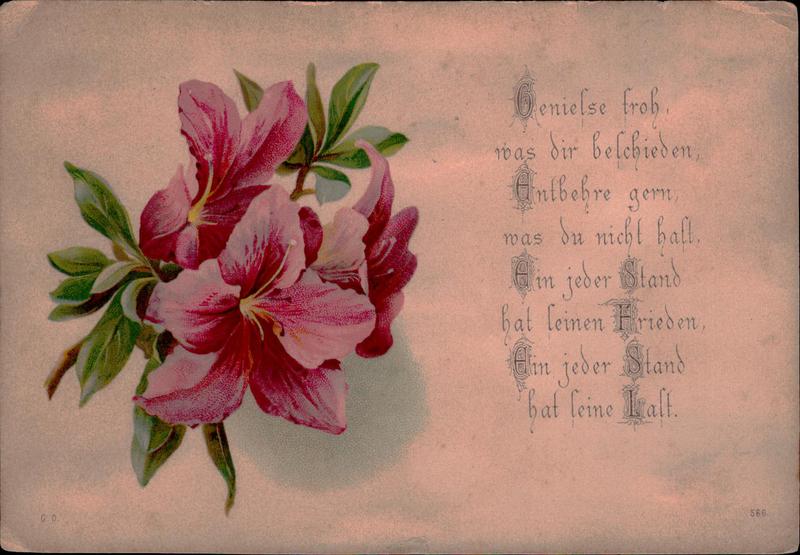 Genieſse froh,
was dir beſchieden,
Entbehre gern,
was du nicht haſt.
Ein jeder Stand
hat ſeinen Frieden,
Ein jeder Stand
hat ſeine Laſt.
G. O.
566.